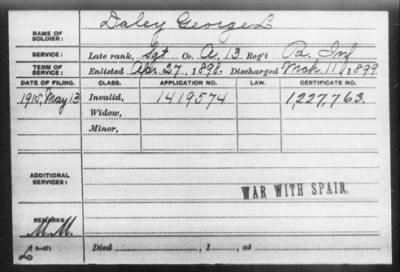 NAME OF SOLDIER: Daley George L
SERVICE: Late rank, Sgt Co. A, 13 Reg't Pa. Inf
TERM OF SERVICE: Enlisted Apr. 27, 1898. Discharged Mch 11, 1899
DATE OF FILING. CLASS. APPLICATION NO. LAW. CERTIFICATE NO.
1910, May 13 Invalid, 1419574 1,227,763.
Widow,
Minor,
ADDITIONAL SERVICES:
WAR WITH SPAIN.
REMARKS:
M.M.
Died , 1 , at